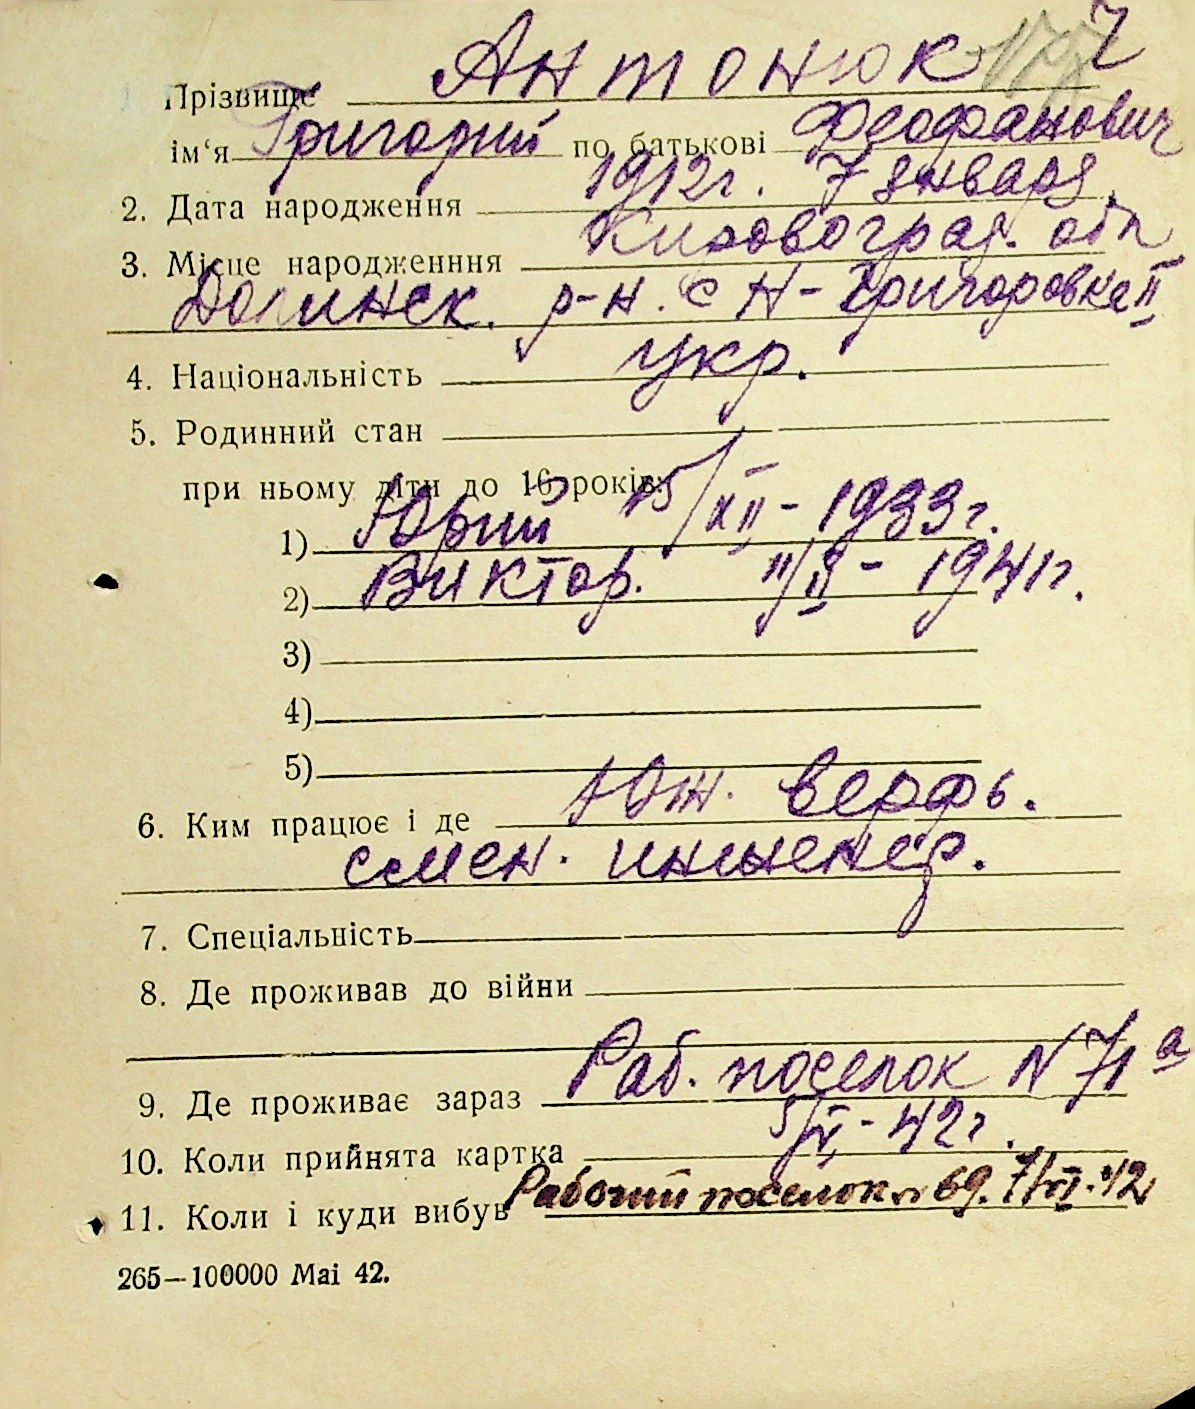 Прізвище Антонюк 7
ім‘я Григорий по батькові Феофанович
2. Дата народження 1912г. 7 января
3. Місце народженння Кировоград. обл
Долинск. р-н. с Н-Григоровка II
4. Національність укр.
5. Родинний стан
при ньому діти до 16 років:
1) Юрий 15/XII - 1933г.
2) Виктор. 11/II - 1941г.
3)
4)
5)
6. Ким працює і де Юж. верфь.
смен. инженер.
7. Спеціальність
8. Де проживав до війни
9. Де проживає зараз Раб. поселок N 71 а
10. Коли прийнята картка - 42г.
11. Коли і куди вибув Рабочий поселок N 69. 7/VI. 42
265—100000 Mai 42.